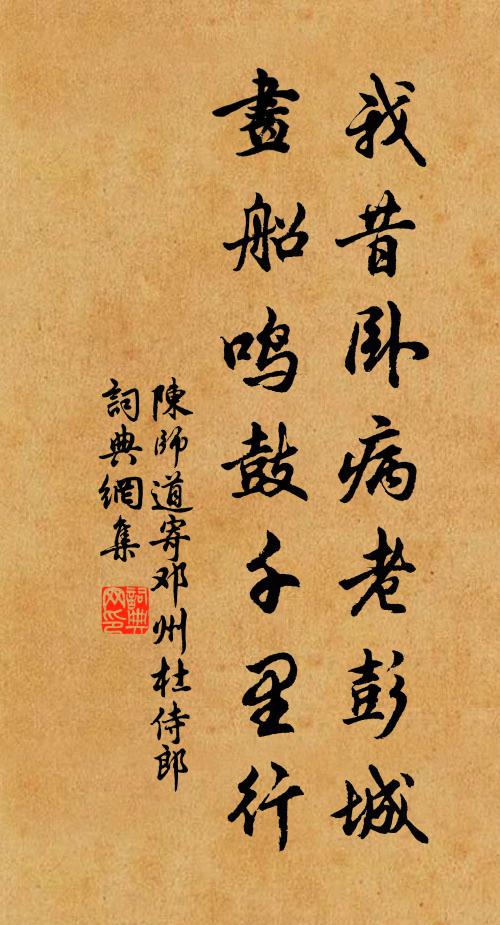 我昔卧病老彭城
畫船鸣鼓千里行
陳师道寄邓州杜侍郎
詞典網集
詞典网印